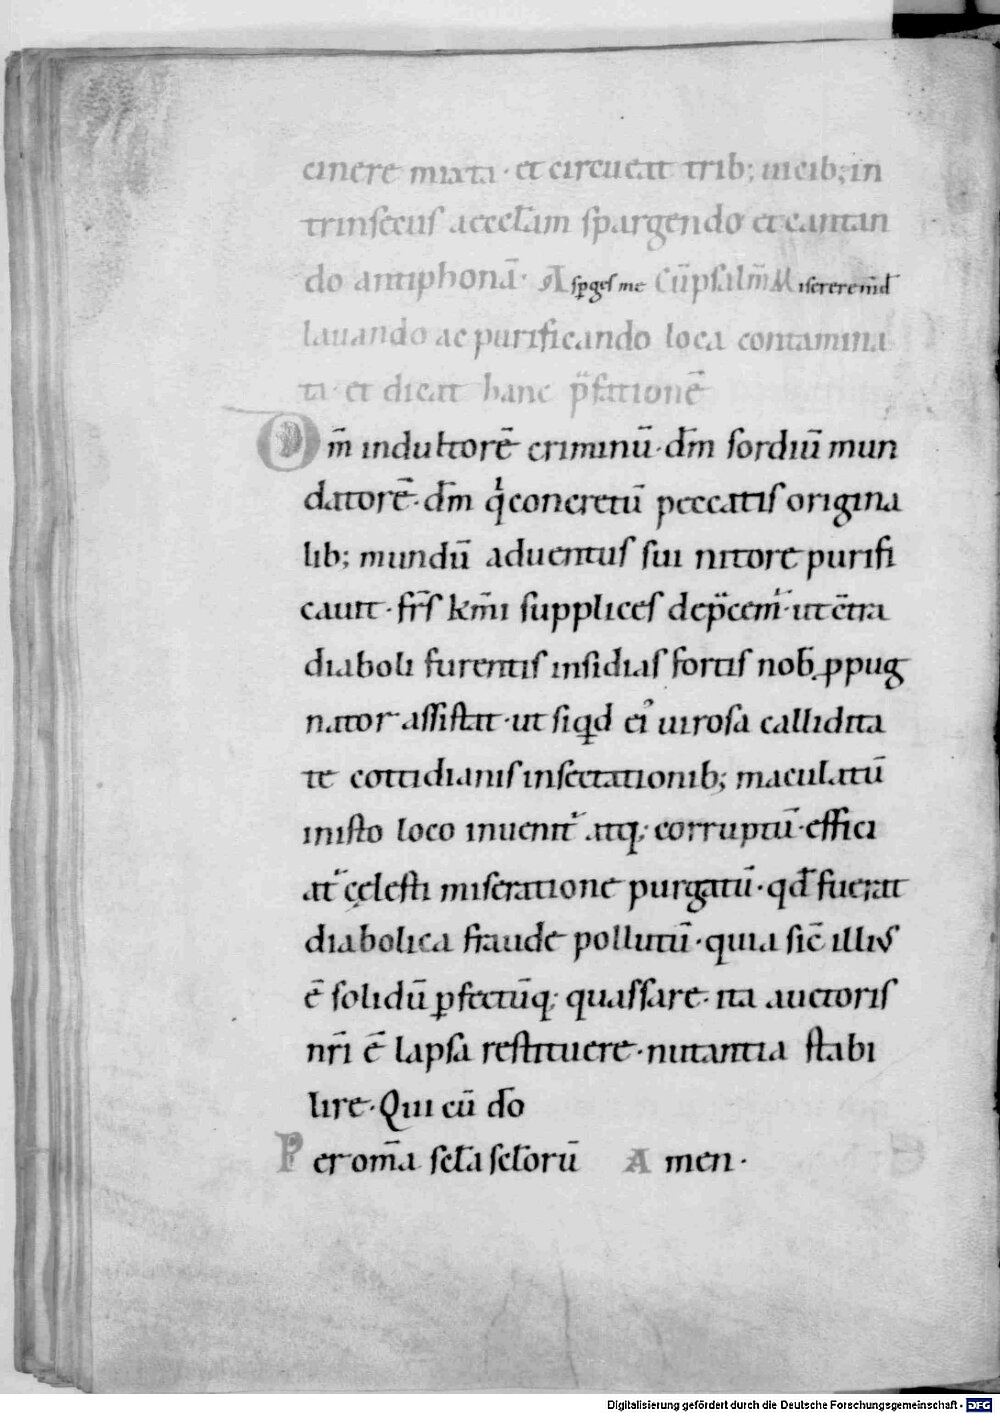 cinere mixta · et circueat trib; uicib; in
trinsecus aeccłam spargendo et cantan
do antiphonā · Asp̱ges me Cū psalm̄ Miserere m̄ d̄s
lauando ac purificando loca contamina
ta · et dicat hanc p̄fationē
Dm̄ indultorē criminū · dm̄ sordiū mun
datorē · dm̄ qͥ concretū peccatis origina
lib; mundū aduentus sui nitore purifi
cauit · fr̄s km̄i supplices dep̄cem᷑ · ut c̄tra
diaboli furentis insidias fortis nob̄ ꝓpug
nator assistat · ut siqͥd ei᷒ uirosa callidita
te cottidianis insectationib; maculatū
in isto loco inuenit᷑ atq; corruptū · effici
at᷑ cęlesti miseratione purgatū · qđ fuerat
diabolica fraude pollutū · quia sic̄ illius
ē solidū ꝑfectūq; quassare · ita auctoris
nr̄i ē lapsa restituere · nutantia stabi
lire · Qui cū do
Per om̄a scła scłorū Amen ·
Digitalisierung gefördert durch die Deutsche Forschungsgemeinschaft - DFG